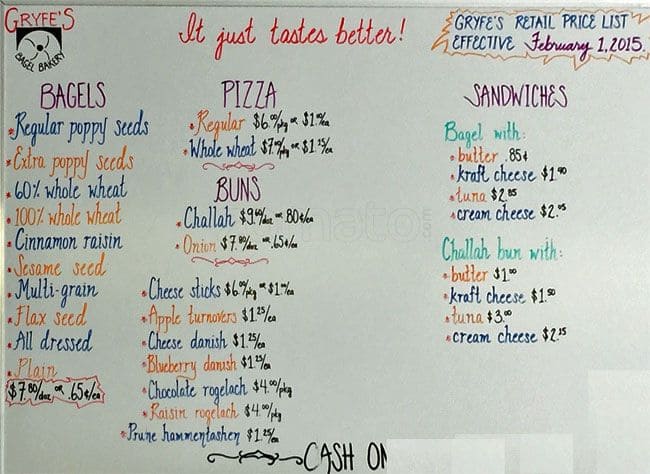 GRYFE'S
BAGEL BAKERY
It just tastes better!
GRYFE'S RETAIL PRICE LIST
EFFECTIVE February 1, 2015.
BAGELS
Regular poppy seeds
Extra poppy seeds
60% whole wheat
100% whole wheat
Cinnamon raisin
Sesame seed
Multi-grain
Flax seed
All dressed
Plain
$7.80/doz or .65¢/ea
PIZZA
Regular $6.00/pkg or $1.00/ea
Whole wheat $7.50/pkg or $1.25/ea
BUNS
Challah $9.60/doz or .80¢/ea
Onion $7.80/doz or .65¢/ea
Cheese sticks $6.00/pkg or $1.00/ea
Apple turnovers $1.25/ea
Cheese danish $1.25/ea
Blueberry danish $1.25/ea
Chocolate rogelach $4.00/pkg
Raisin rogelach $4.00/pkg
Prune hammentashen $1.25/ea
SANDWICHES
Bagel with:
butter .85¢
kraft cheese $1.40
tuna $2.85
cream cheese $2.05
Challah bun with:
butter $1.00
kraft cheese $1.50
tuna $3.00
cream cheese $2.15
CASH ON